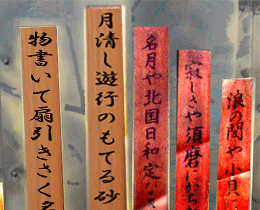 物書いて扇引きさく名
月清し遊行のもてる砂
名月や北国日和定な
寂しさや須磨にかち
浪の間や小貝